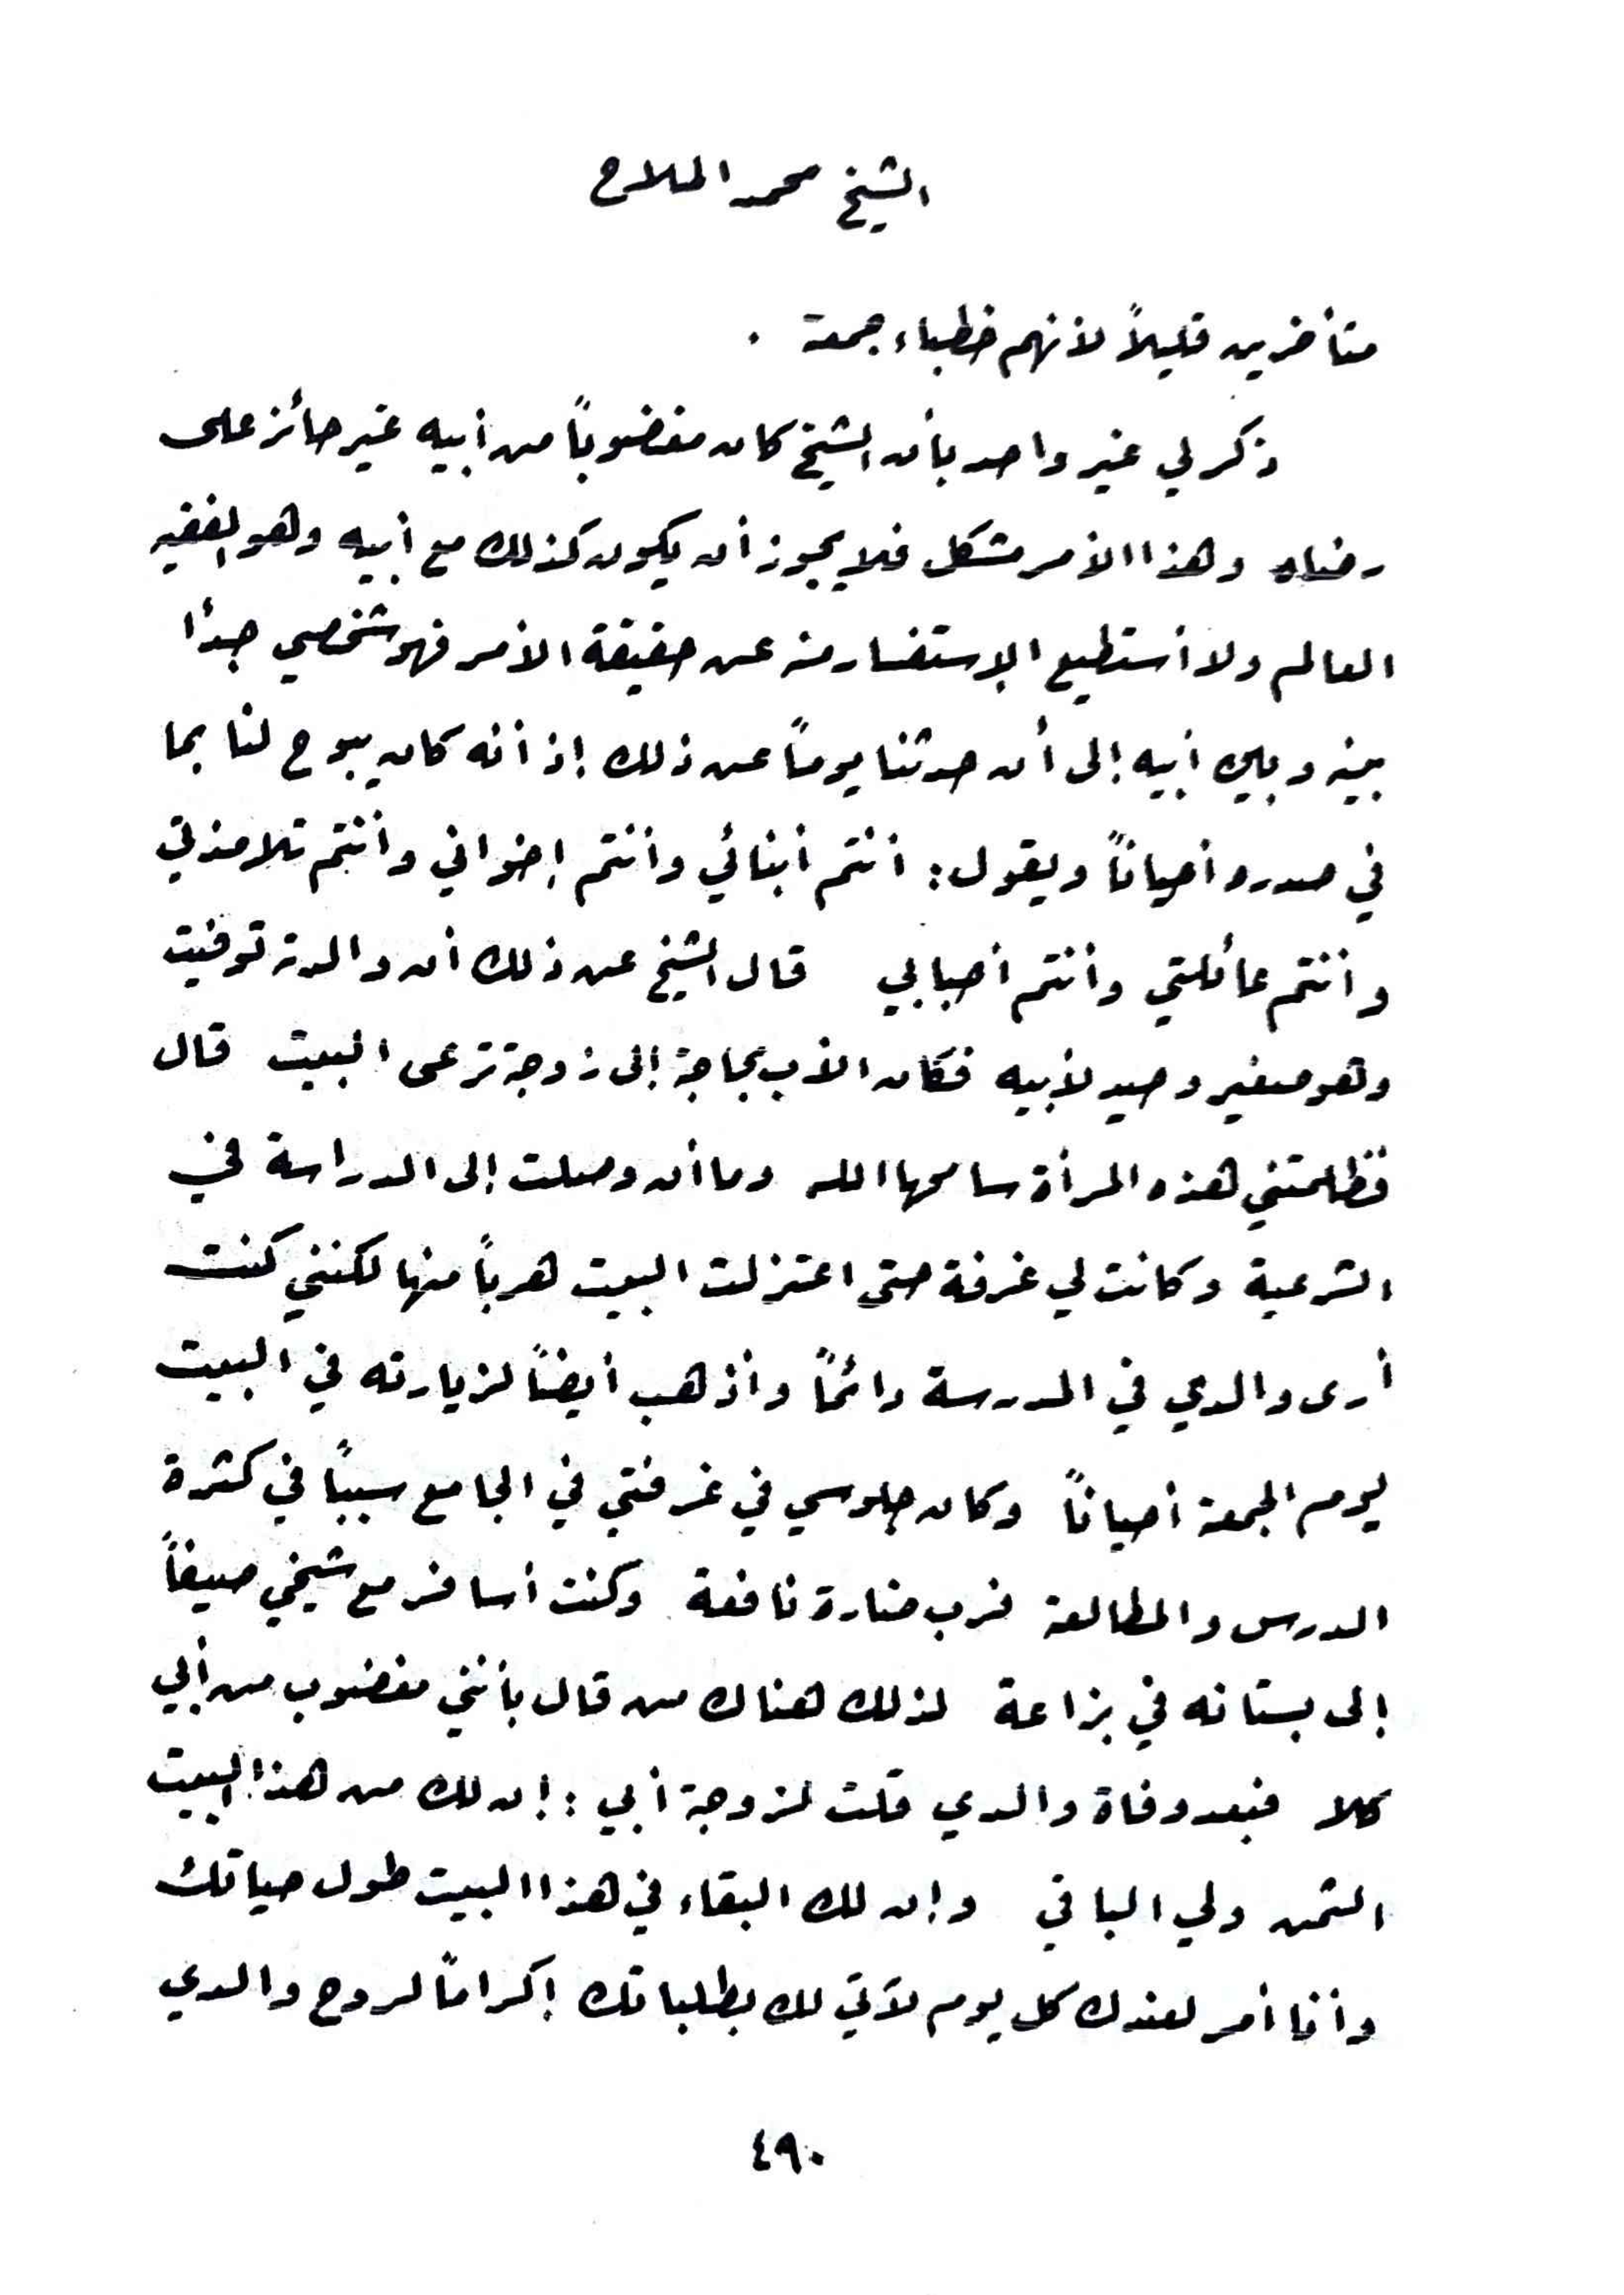 الشيخ محمد الملاح
متأخرين قليلاً لأنهم خطباء جمعة .
ذكر لي غير واحد بأن الشيخ كان مغضوباً من أبيه غير حائز على
رضاه وهذا الأمر مشكل فلا يجوز أن يكون كذلك مع أبيه وهو الفقيه
العالم ولا أستطيع الإستفسار منه عن حقيقة الأمر فهو شخصي جداً
بينه وبين أبيه إلى أن حدثنا يوماً عن ذلك إذ أنه كان يبوح لنا بما
في صدره أحياناً ويقول : أنتم أبنائي وأنتم إخواني وأنتم تلامذتي
وأنتم عائلتي وأنتم أحبابي قال الشيخ عن ذلك أن والدته توفيت
وهو صغير وحيد لأبيه فكان الأب بحاجة إلى زوجة ترعى البيت قال
فظلمتني هذه المرأة سامحها الله وما أن وصلت إلى الدراسة في
الشرعية وكانت لي غرفة حتى اعتزلت البيت هرباً منها لكنني كنت
أرى والدي في المدرسة دائماً وأذهب أيضاً لزيارته في البيت
يوم الجمعة أحياناً وكان جلوسي في غرفتي في الجامع سبباً في كثرة
الدرس والمطالعة فرب ضارة نافعة وكنت أسافر مع شيخي صيفاً
إلى بستانه في بزاعة لذلك هناك من قال بأنني مغضوب من أبي
كلا فبعد وفاة والدي قلت لزوجة أبي : إن لك من هذا البيت
الثمن ولي الباقي وإن لك البقاء في هذا البيت طول حياتك
وأنا أمر لعندك كل يوم لآتي لك بطلباتك إكراماً لروح والدي
٤٩٠